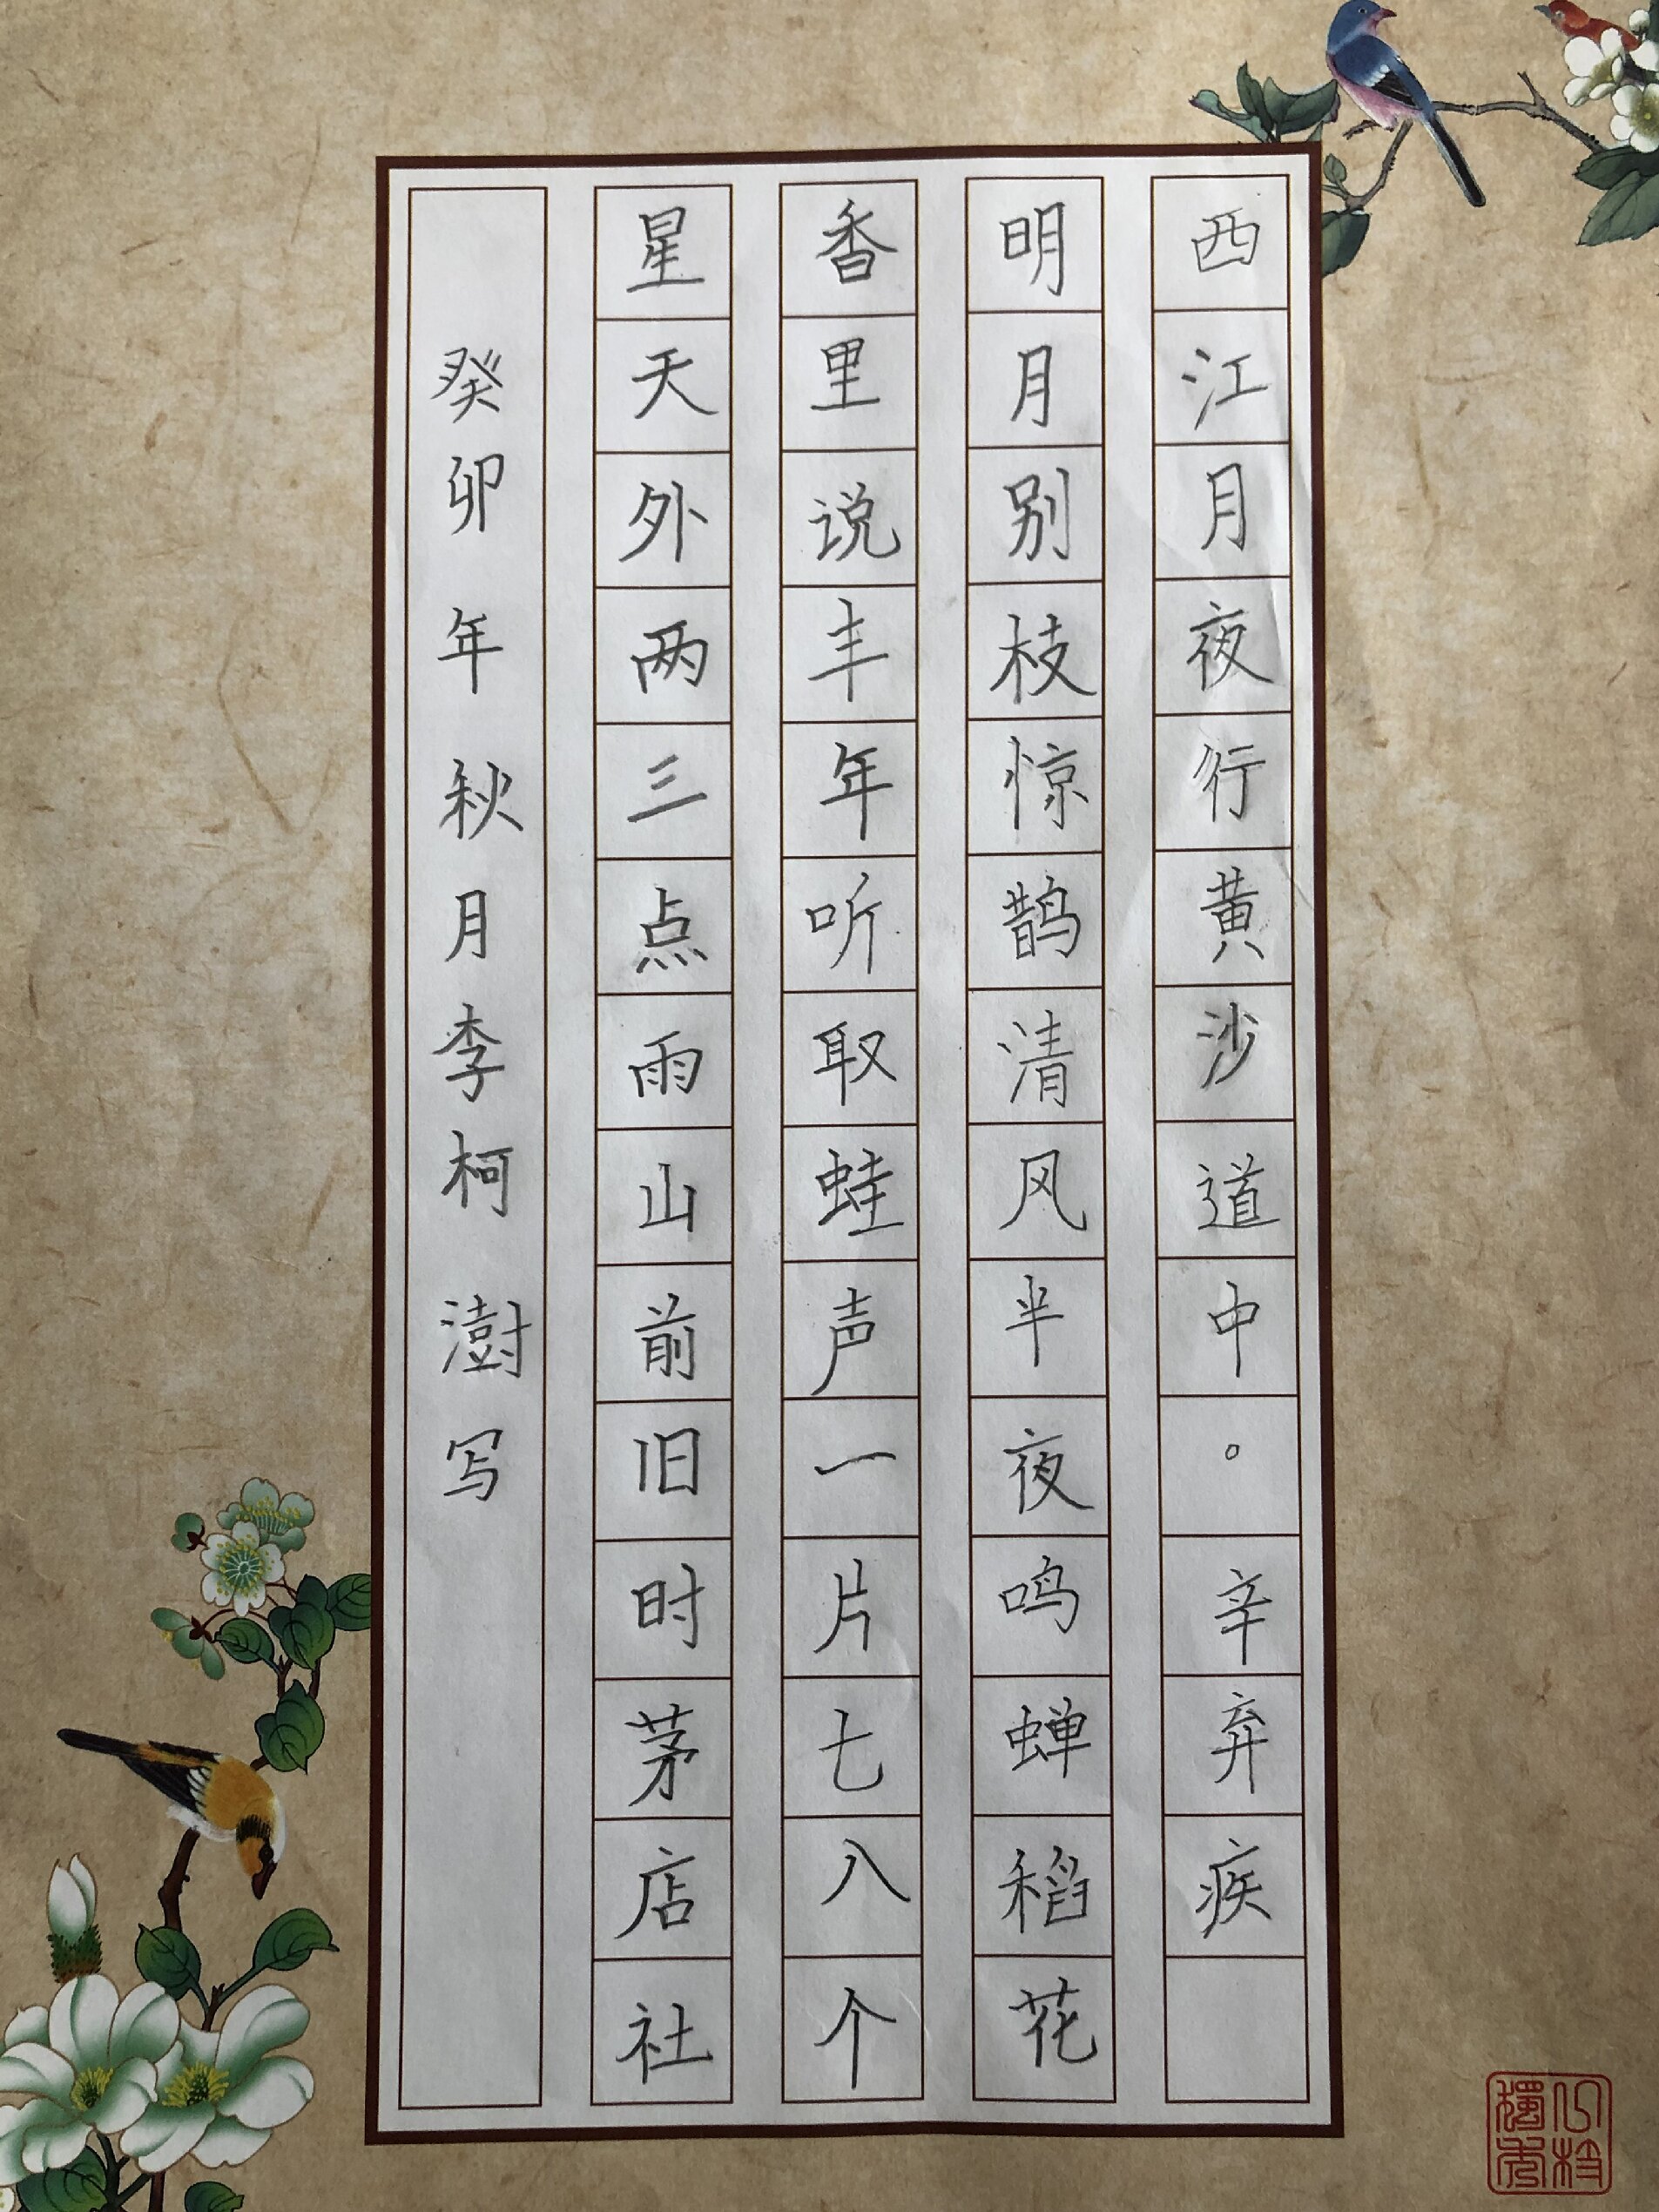 西江月夜行黄沙道中。辛弃疾
明月别枝惊鹊清风半夜鸣蝉稻花
香里说丰年听取蛙声一片七八个
星天外两三点雨山前旧时茅店社
癸卯年秋月李柯澍写